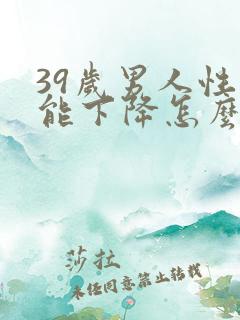 39歲男人性
能下降怎麼
莎拉
未经同意禁止转载